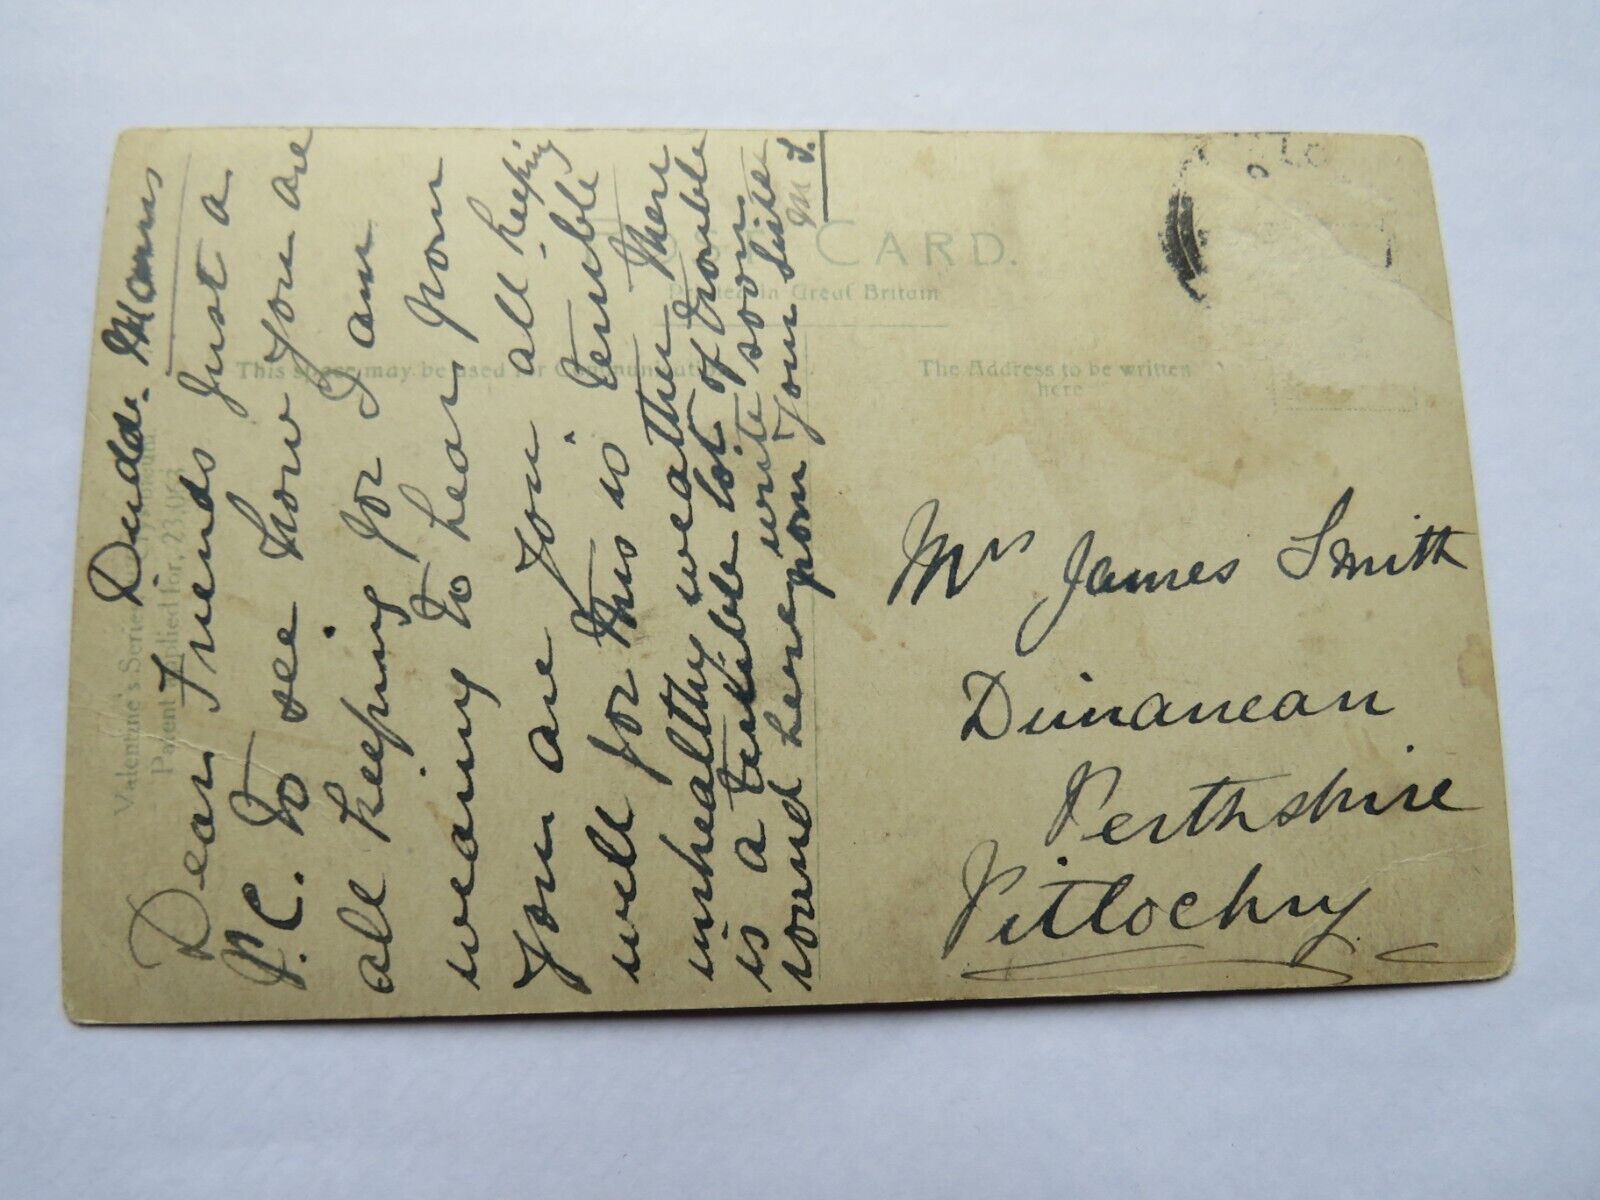 POST CARD.
Printed in Great Britain
This space may be used for Communication
The Address to be written
here
Valentine's Series
Patent applied for, 23,063
Dear Friends Just a
P.C. To see how you are
all keeping for I am
wearing to hear from
you are you all keeping
well for this is terrible
unhealthy weather there
is a terrible lot of trouble
round here write soon
from your sister
M S.
Mrs James Smith
Dunanean
Perthshire
Pitlochry